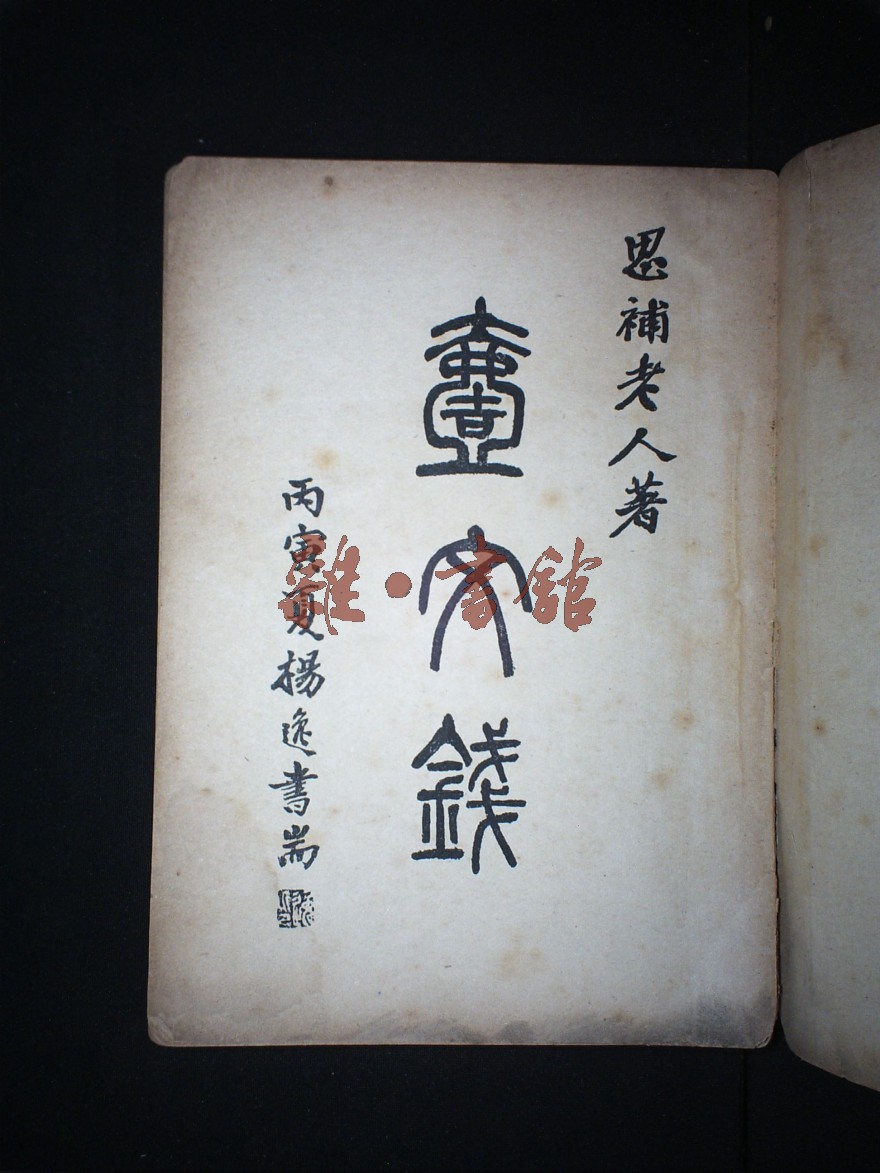 思補老人著
壹文錢
丙寅夏楊逸書耑
雜·書館